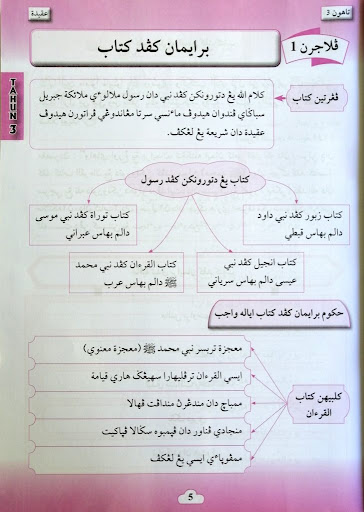 تاهون 3
عقيدة
ڤلاجرن 1
برايمان كڤد كتاب
TAHUN 3
ڤڠرتين كتاب
كلام الله يڠ دتورونكن كڤد نبي دان رسول ملالوءي ملائكة جبريل
سباݢاي ڤندوان هيدوڤ مأنسي سرتا مڠاندوڠي ڤراتورن هيدوڤ
عقيدة دان شريعة يڠ لڠكڤ.
كتاب يڠ دتورونكن كڤد رسول
كتاب توراة كڤد نبي موسى
دالم بهاس عبراني
كتاب زبور كڤد نبي داود
دالم بهاس قبطي
كتاب القرءان كڤد نبي محمد
ﷺ دالم بهاس عرب
كتاب انجيل كڤد نبي
عيسى دالم بهاس سرياني
حكوم برايمان كڤد كتاب اياله واجب
كلبيهن كتاب
القرءان
معجزة تربسر نبي محمد ﷺ (معجزة معنوي)
ايسي القرءان ترڤليهارا سهيڠݢ هاري قيامة
ممباچ دان مندڠرڽ منداڤت ڤهالا
منجادي ڤناور دان ڤڽمبوه سݢالا ڤڽاكيت
ممڤوڽاءي ايسي يڠ لڠكڤ
5